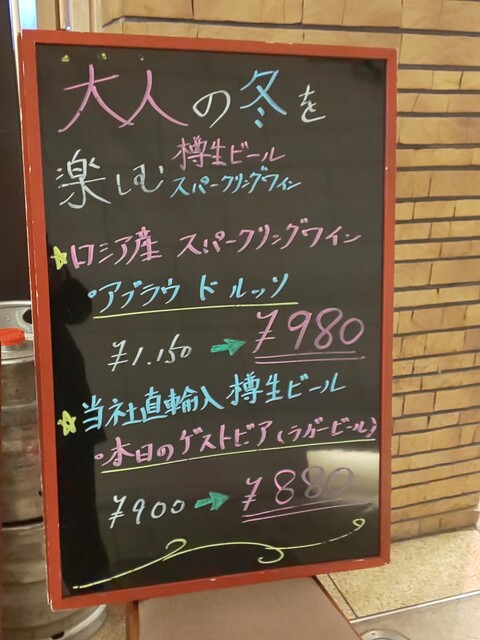 大人の冬を
楽しむ 樽生ビール
スパークリングワイン
☆ロシア産 スパークリングワイン
・アブラウ ド ルッソ
¥1.150 → ¥980
☆当社直輸入 樽生ビール
・本日のゲストビア(ラガービール)
¥900 → ¥880